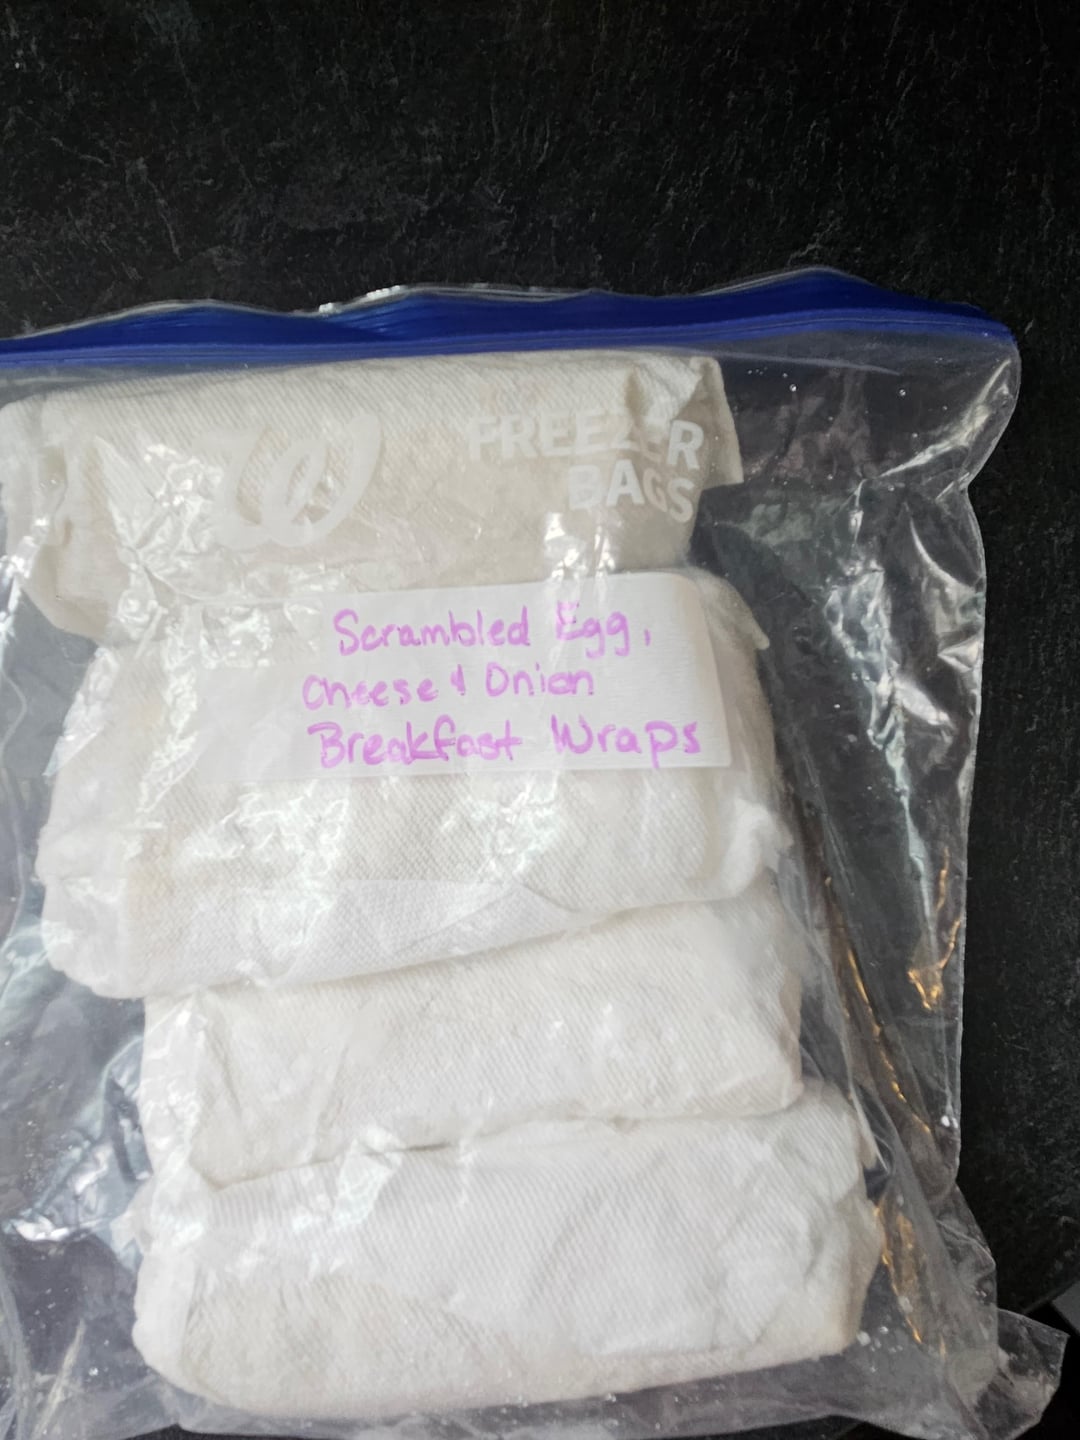 FREEZER
BAGS
Scrambled Egg,
Cheese & Onion
Breakfast Wraps